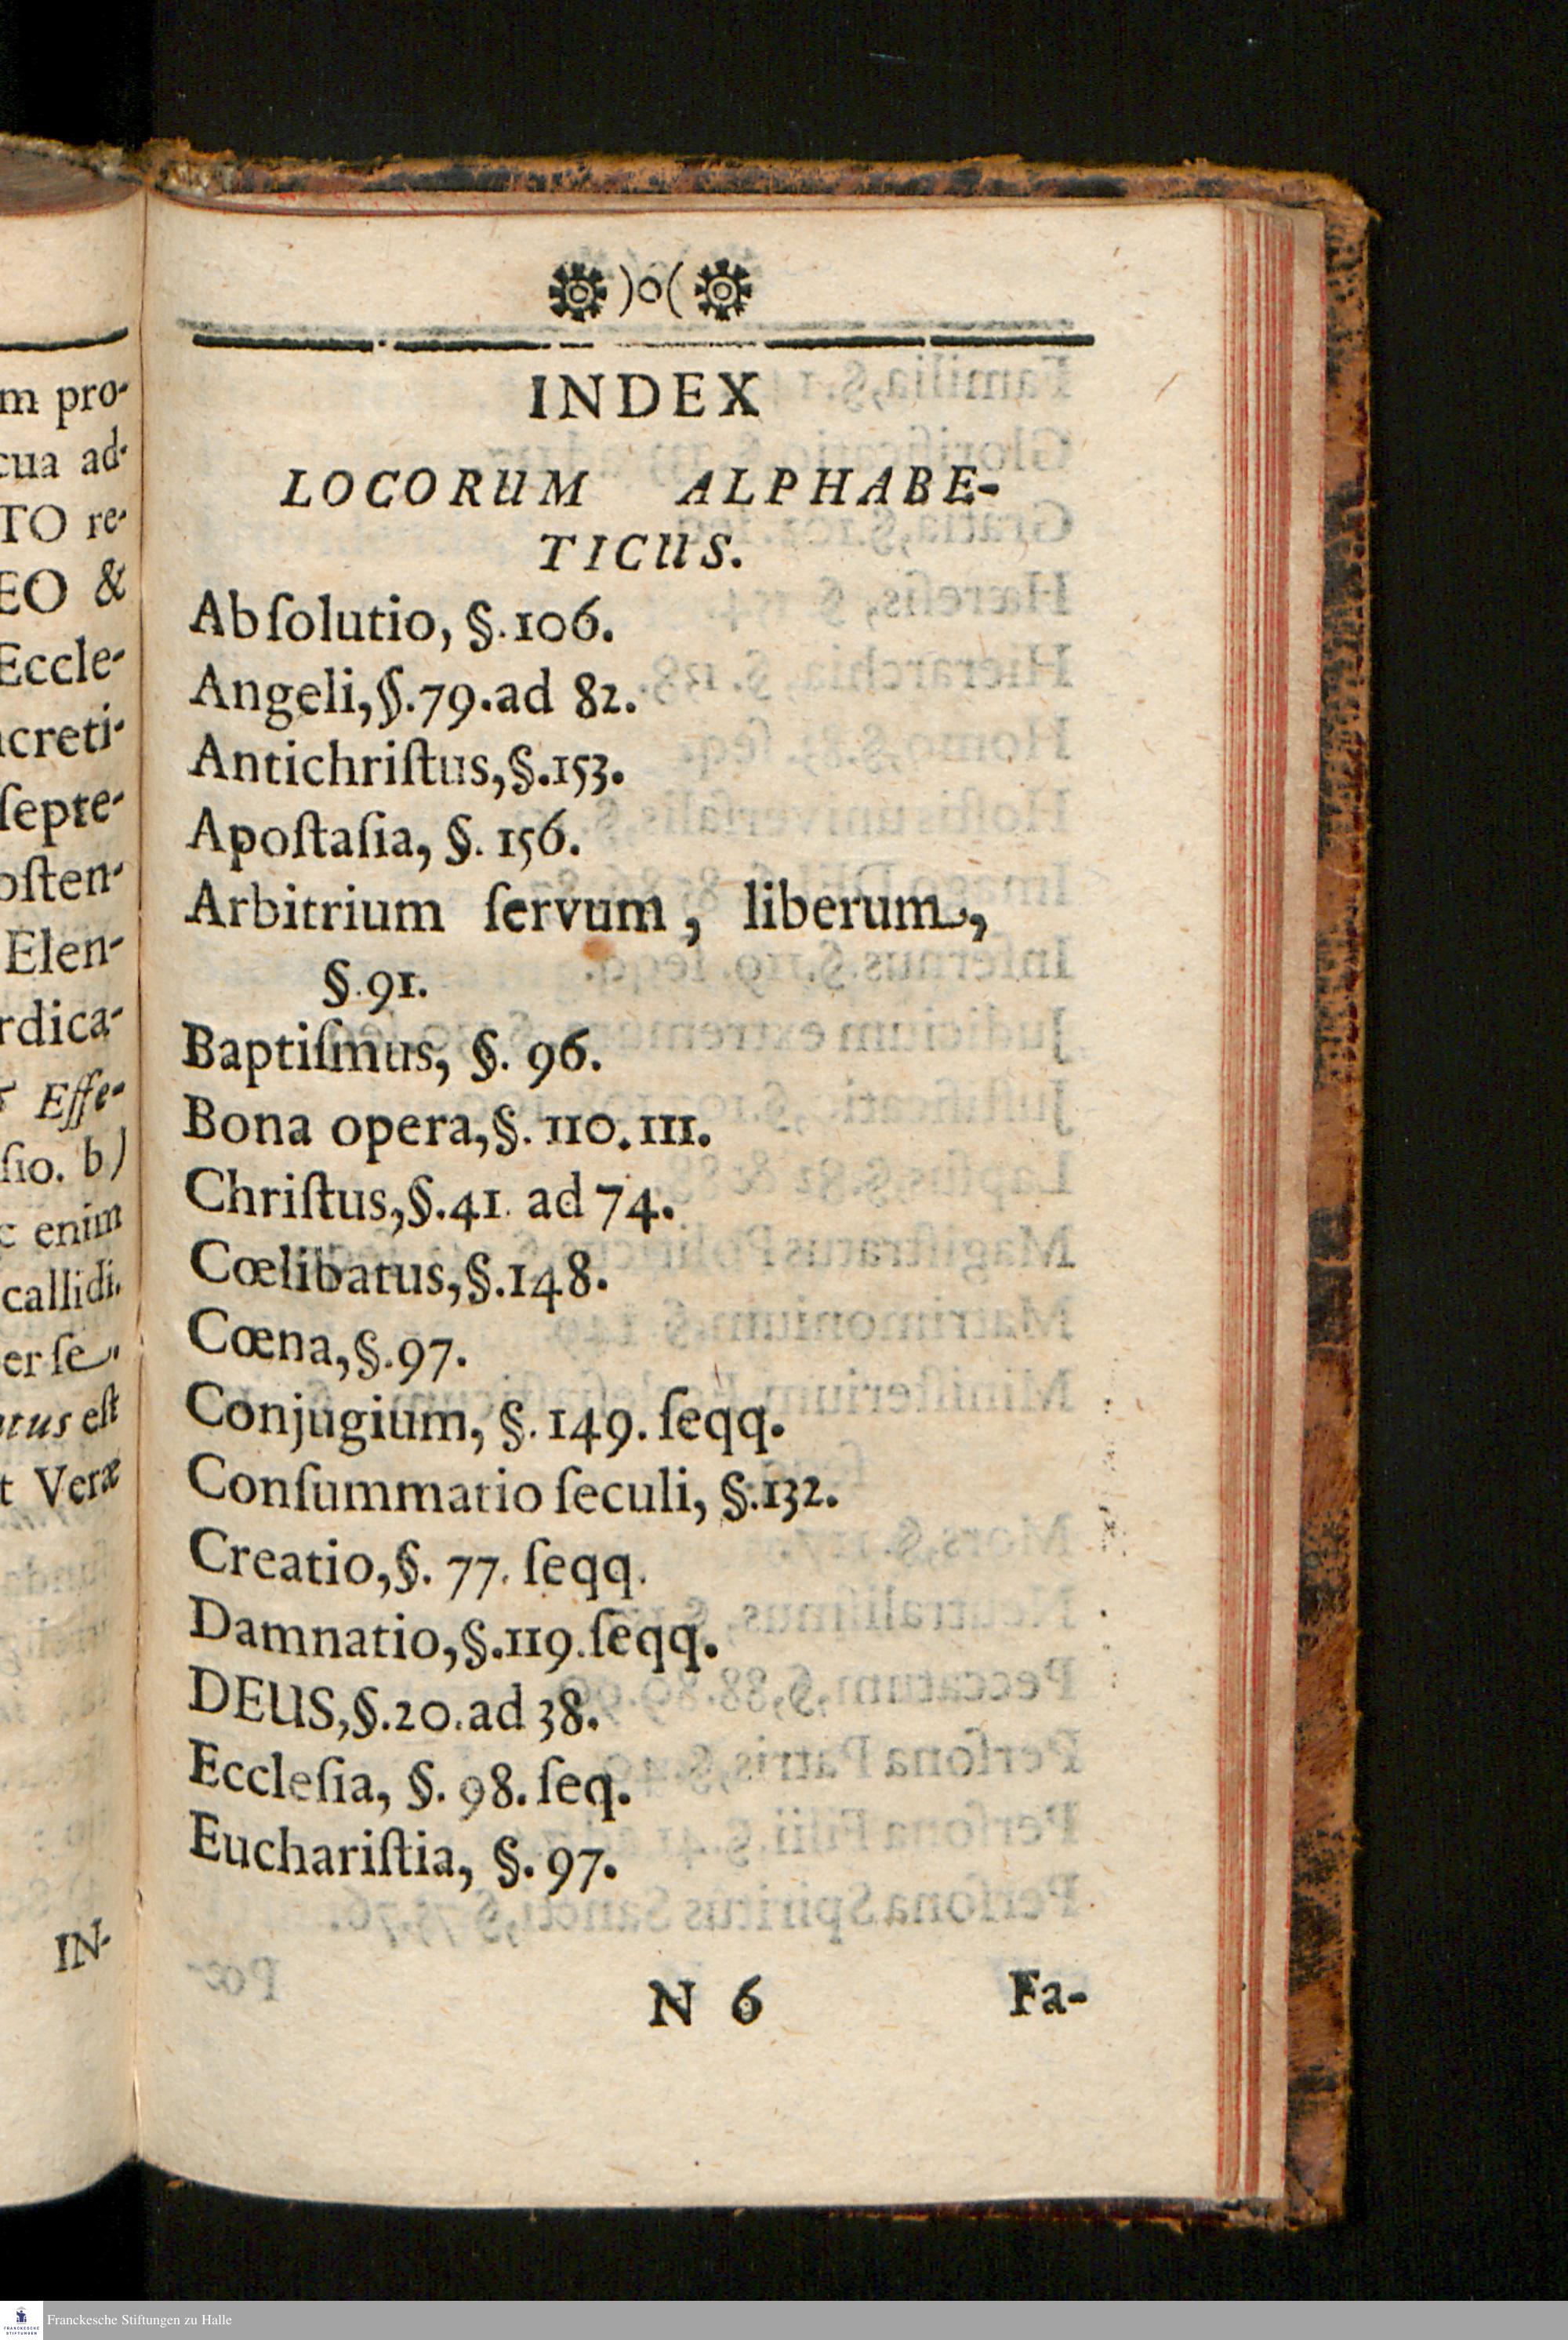 m pro-
cua ad-
TO re-
EO &
Eccle-
ncreti-
ſepte-
oſten-
Elen-
rdica-
Effe-
ſio. b)
c enim
callidi.
er ſe
atus eſt
t Veræ
IN-
)o(
INDEX
LOCORUM ALPHABE-
TICUS.
Abſolutio, §. 106.
Angeli, §. 79. ad 82.
Antichriſtus, §. 153.
Apoſtaſia, §. 156.
Arbitrium ſervum, liberum,
§. 91.
Baptiſmus, §. 96.
Bona opera, §. 110. 111.
Chriſtus, §. 41. ad 74.
Cœlibatus, §. 148.
Cœna, §. 97.
Conjugium, §. 149. ſeqq.
Conſummatio ſeculi, §. 132.
Creatio, §. 77. ſeqq.
Damnatio, §. 119. ſeqq.
DEUS, §. 20. ad 38.
Eccleſia, §. 98. ſeq.
Euchariſtia, §. 97.
N 6 Fa-
FRANCKESCHE
STIFTUNGEN
Franckesche Stiftungen zu Halle